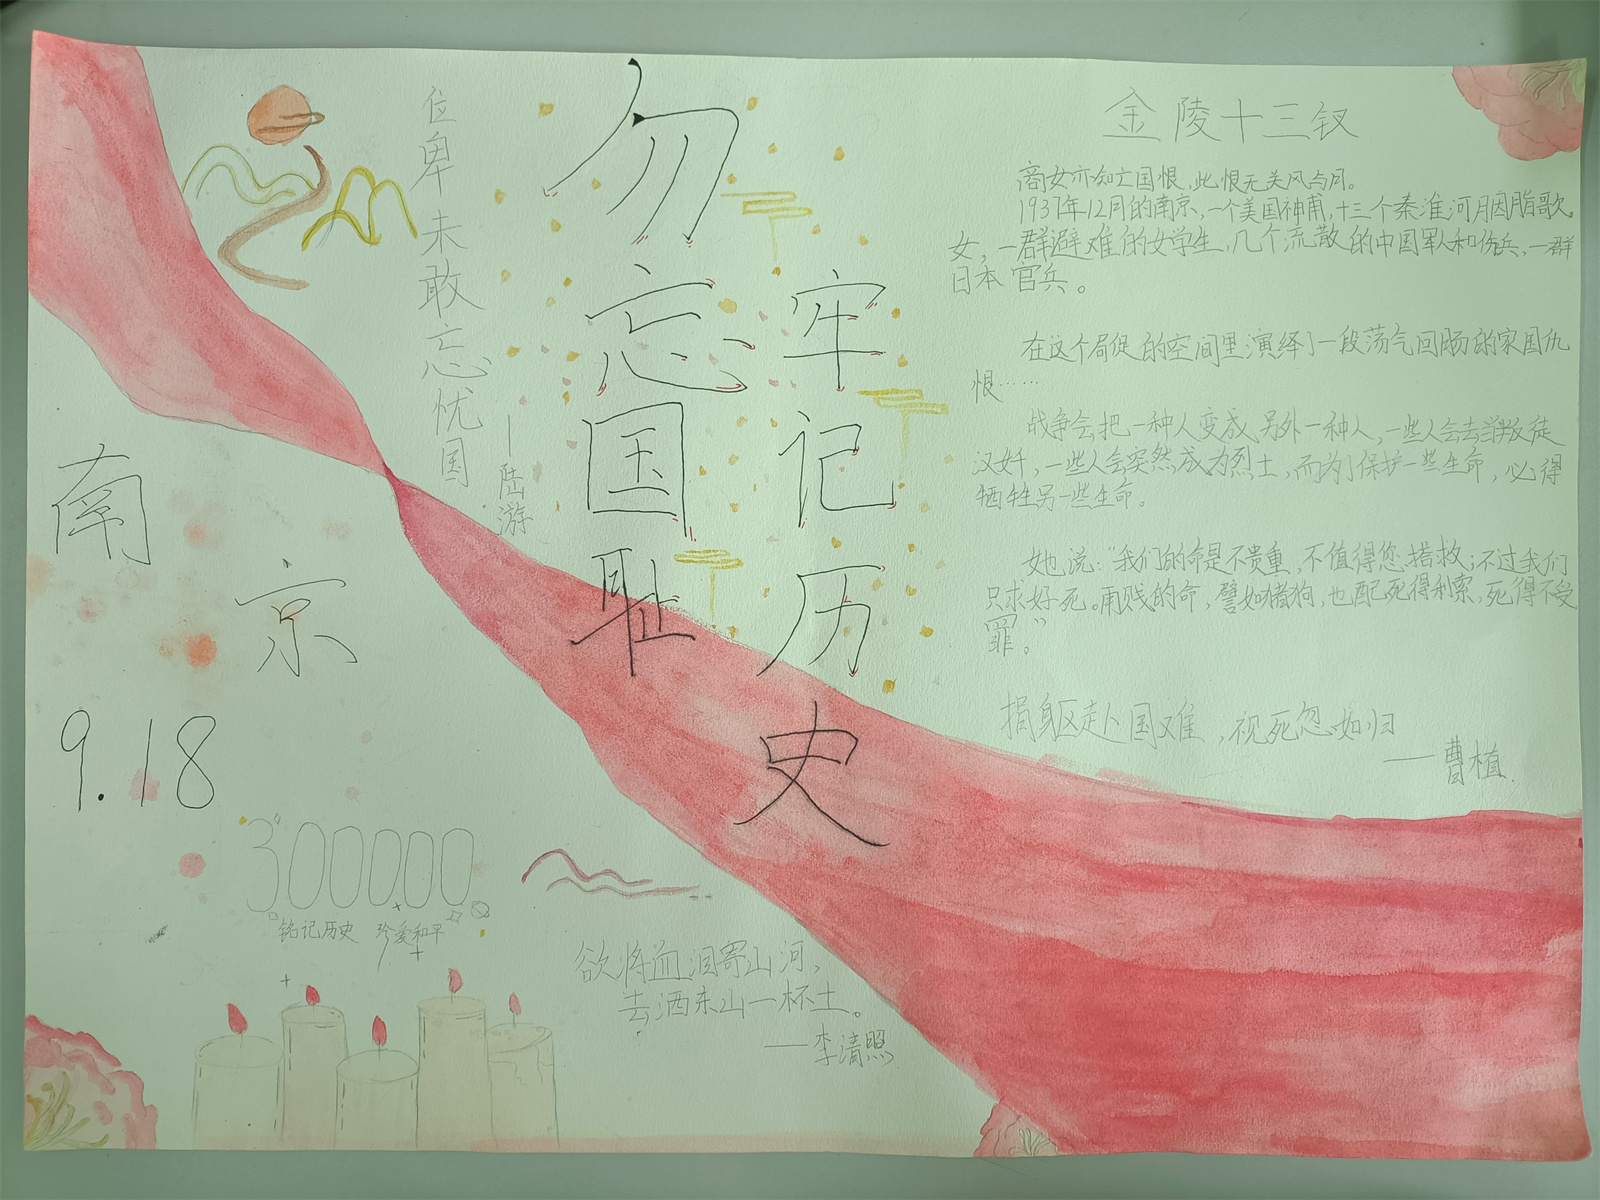 勿忘国耻
牢记历史
位卑未敢忘忧国
—陆游
南京
9.18
300000
铭记历史 珍爱和平
欲将血泪寄山河,
去洒东山一杯土。
——李清照
金陵十三钗
商女亦知亡国恨,此恨无关风与月。
1937年12月的南京,一个美国神甫,十三个秦淮河胭脂歌
女,一群避难的女学生,几个流散的中国军人和伤兵,一群
日本官兵。
在这个局促的空间里演绎了一段荡气回肠的家国仇
恨……
战争会把一种人变成另外一种人,一些人会去当叛徒
汉奸,一些人会突然成为烈士,而为了保护一些生命,必得
牺牲另一些生命。
她说:“我们的命是不贵重,不值得您搭救;不过我们
只求好死。再贱的命,譬如猪狗,也配死得利索,死得不受
罪。”
捐躯赴国难,视死忽如归
——曹植.